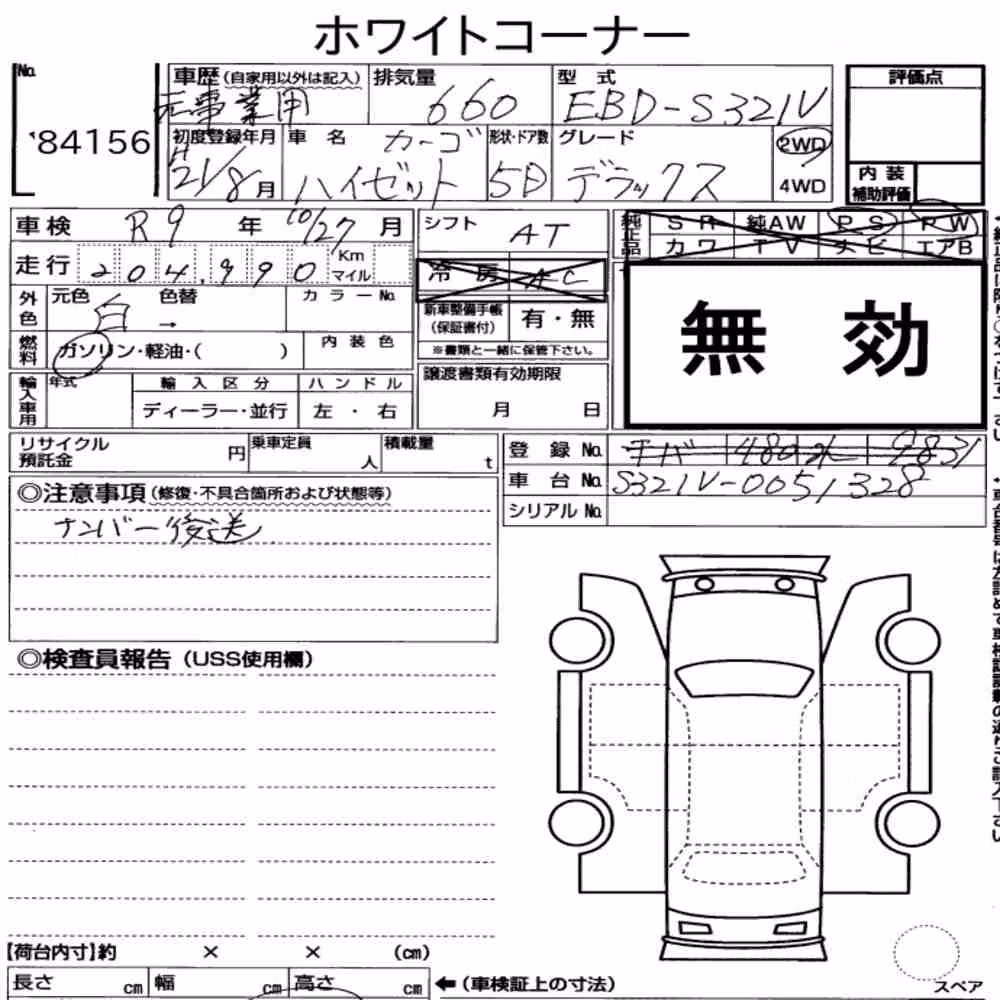 ホワイトコーナー
No.
84156
車歴(自家用以外は記入)
元事業用
排気量
660
型式
EBD-S321V
評価点
初度登録年月
H21/8月
車名
カーゴ
ハイゼット
形状・ドア数
5D
グレード
デラックス
2WD
4WD
内装
補助評価
車検 R9年10/27月
シフト
AT
純正品
SR 純AW PS PW
カワ TV ナビ エアB
走行 204,990 Km マイル
冷房 AC
外色
元色 白
色替 →
カラーNo.
新車整備手帳
(保証書付)
有・無
※書類と一緒に保管下さい。
無効
燃料
ガソリン・軽油・( )
内装色
輸入車用
年式
輸入区分
ディーラー・並行
ハンドル
左・右
譲渡書類有効期限
月 日
リサイクル
預託金 円
乗車定員 人
積載量 t
登録No.
車台No. S321V-0051328
シリアルNo.
◎注意事項(修復・不具合箇所および状態等)
ナンバー後送
◎検査員報告(USS使用欄)
【荷台内寸】約 × × (cm)
長さ cm 幅 cm 高さ cm
←(車検証上の寸法)
スペア